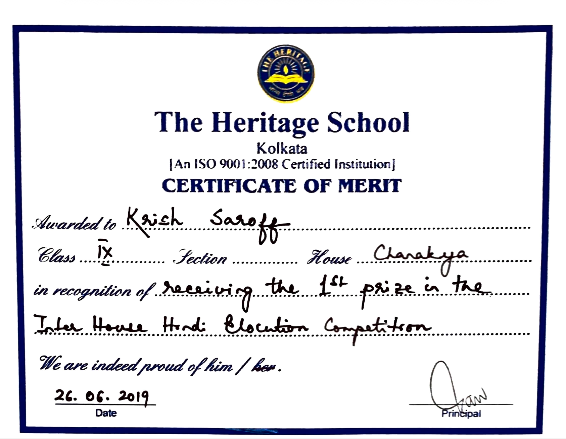 THE HERITAGE
The Heritage School
Kolkata
[An ISO 9001:2008 Certified Institution]
CERTIFICATE OF MERIT
Awarded to Krish Saroff
Class IX Section House Chanakya
in recognition of receiving the 1st prize in the
Inter House Hindi Elocution Competition
We are indeed proud of him / her.
26. 06. 2019
Date Principal